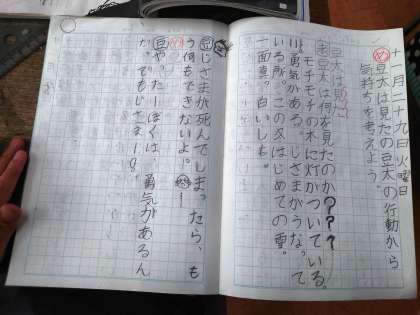 十一月二十九日火曜日
め豆太は見たの豆太の行動から
気持ちを考えよう。
豆太は見た
豆太は何を見たのか???
モチモチの木に灯がついている。
勇気がある。じさまがうなって
いる所。この冬はじめての雪。
一面真っ白いしも。
じさまが死んでしまったら、も
う何もできないよ。
豆や、たーぼくは、勇気があるん
だ。でもじさまー